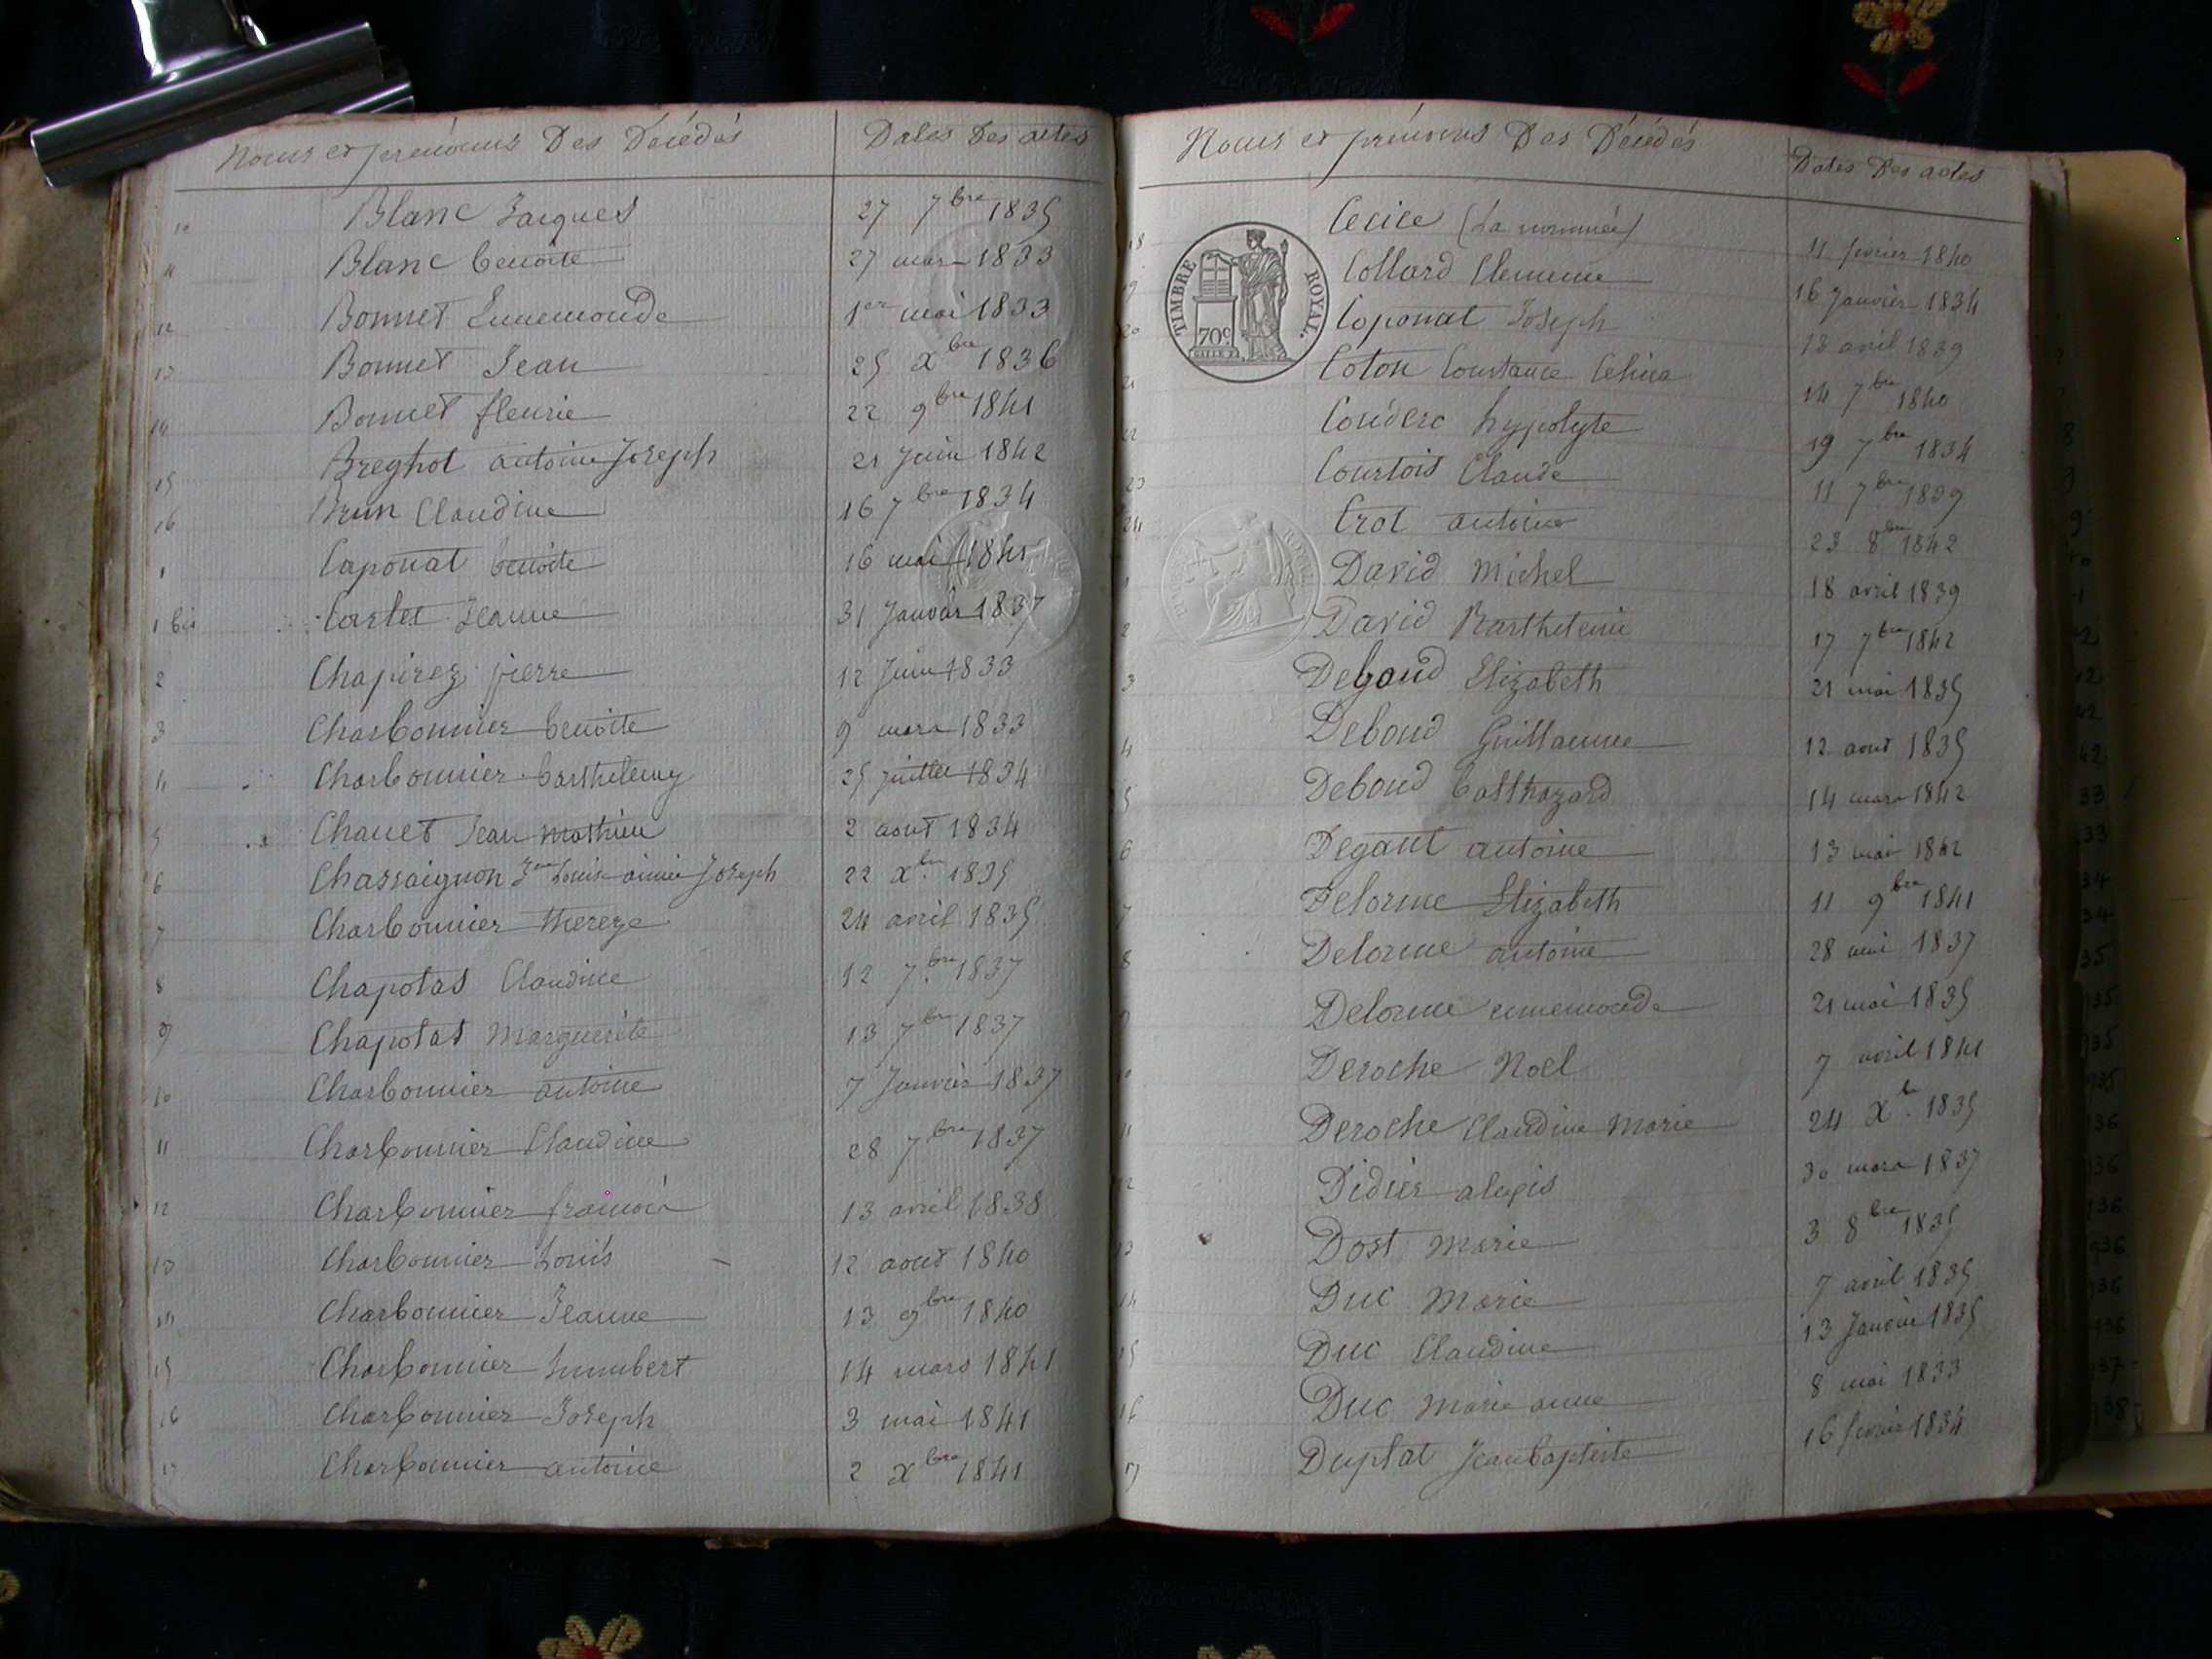 Noms et prénoms Des Décédés Dates Des actes
10 Blanc Jacques 27 7bre 1835
11 Blanc benoite 27 mars 1833
12 Bonnet Ennemonde 1er mai 1833
13 Bonnet Jean 25 Xbre 1836
14 Bonnet fleurie 22 9bre 1841
15 Breghot antoine Joseph 21 Juin 1842
16 Brun Claudine 16 7bre 1834
1 Caponat benoite 16 mai 1841
1 bis Carlet Jeanne 31 Janvier 1837
2 Chapirez pierre 12 Juin 1833
3 Charbonnier benoite 9 mars 1833
4 Charbonnier barthelemy 25 Juillet 1834
5 Chauet Jean mathieu 2 aout 1834
6 Chassaignon Louis aimé Joseph 22 Xbre 1835
7 Charbonnier thereze 24 avril 1835
8 Chapotas Claudine 12 7bre 1837
9 Chapotat Marguerite 13 7bre 1837
10 Charbonnier antoine 7 Janvier 1837
11 Charbonnier Claudine 28 7bre 1837
12 Charbonnier francois 13 avril 1838
13 Charbonnier Louis 12 aout 1840
14 Charbonnier Jeanne 13 9bre 1840
15 Charbonnier humbert 14 mars 1841
16 Charbonnier Joseph 3 mai 1841
17 Charbonnier antoine 2 Xbre 1841
Noms et prénoms Des Décédés Dates Des actes
TIMBRE ROYAL.
70c
18 Cecile (La nommée) 11 fevrier 1840
19 Collard Clemence 16 Janvier 1834
20 Coponat Joseph 13 avril 1839
21 Coton Constance 14 7bre 1840
22 Couderc hypolyte 19 7bre 1834
23 Courtois Claude 11 7bre 1839
24 Crot antoine 23 8bre 1842
1 David Michel 18 avril 1839
2 David Barthelemi 17 7bre 1842
3 Deboud Elizabeth 21 mai 1835
4 Deboud Guillaume 12 aout 1835
5 Deboud balthazard 14 mars 1842
6 Degaut antoine 13 mai 1842
7 Delorme Elizabeth 11 9bre 1841
8 Delorme antoine 28 mai 1837
9 Delorme ennemonde 21 mai 1835
10 Deroche Noel 7 avril 1841
11 Deroche Claudine Marie 24 Xbre 1835
12 Didier alexis 30 mars 1837
13 Dost Marie 3 8bre 1835
14 Duc Marie 7 avril 1835
15 Duc Claudine 13 Janvier 1835
16 Duc Marie anne 8 mai 1833
17 Duplat Jean baptiste 16 fevrier 1834